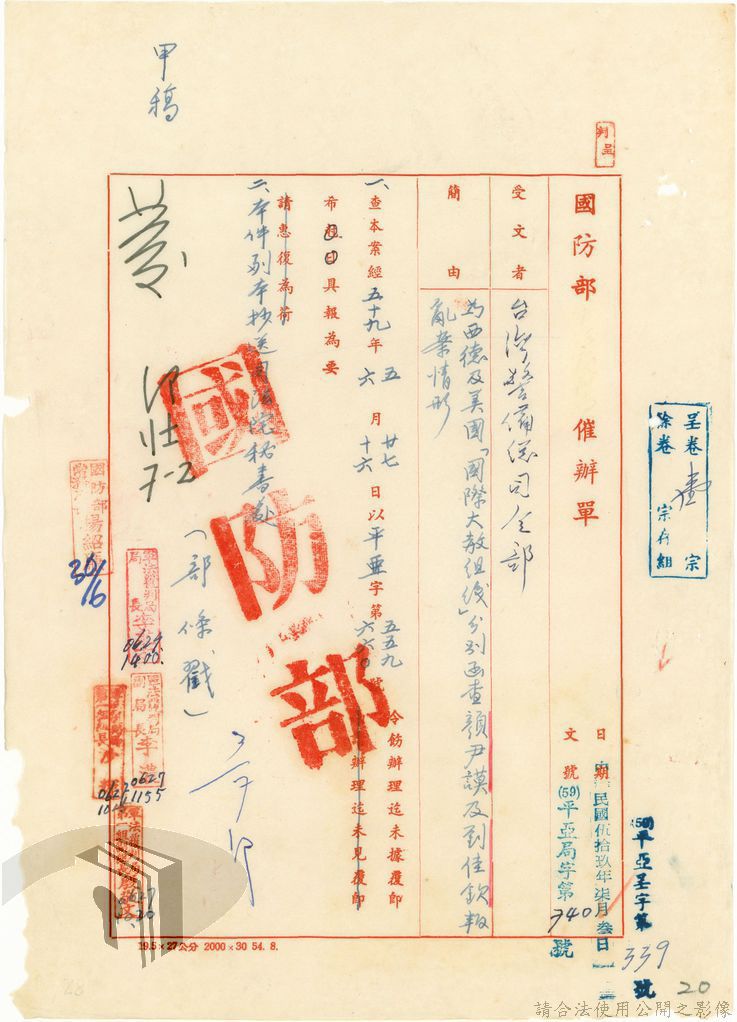 甲稿
判呈
國防部 催辦單
受文者
台灣警備總司令部
日期
中華民國伍拾玖年柒月叁日
文號
(59)平亞局字第740號
簡由
為西德及美國「國際大赦組織」分別函查顏尹謨及劉佳欽叛亂案情形
一、查本案經五十九年五月廿七日以平亞字第五五九
六 十六 六六〇號
令飭辦理迄未據覆即
辦理迄未見覆即
希 具報為要
請惠復為荷
二、本件副本抄送司法院秘書處
(部條戳)
國防部
呈卷 壹 宗
餘卷 宗存組
(59)平亞呈字第339號
7-2
30/6
0627
1400
0627
1155
0627
19.5×27公分 2000×30 54. 8.
20
請合法使用公開之影像